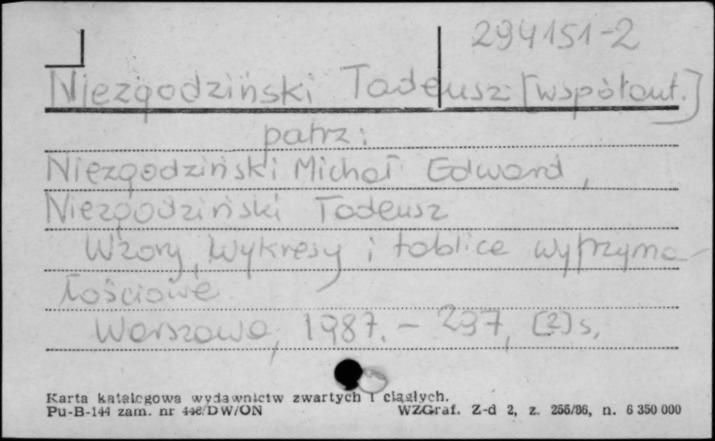 294151-2
Niezgodziński Tadeusz: [współaut.]
patrz:
Niezgodziński Michał Edward,
Niezgodziński Tadeusz
Wzory, wykresy i tablice wytrzyma-
łościowe
Warszawa, 1987. - 297, [2]s.
Karta katalogowa wydawnictw zwartych i ciągłych.
Pu-B-144 zam. nr 446/DW/ON WZGraf. Z-d 2, z. 256/86, n. 6 350 000